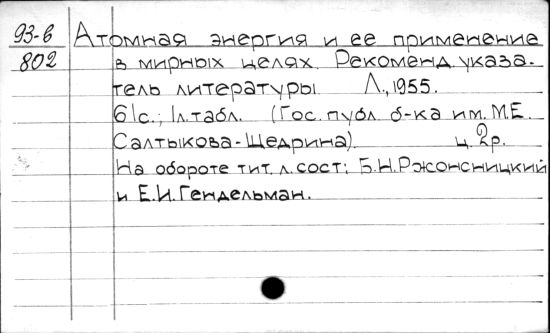 93-6 Атомная энергия и ее применение
802 в мирных целях. Рекоменд. указа-
тель литературы Л., 1955.
61с.; 1л.табл. (Гос. публ. б-ка им. М.Е.
Салтыкова-Щедрина) ц. 2р.
На обороте тит. л. сост: Б.Н.Ржонсницкий
и Е.И.Гендельман.